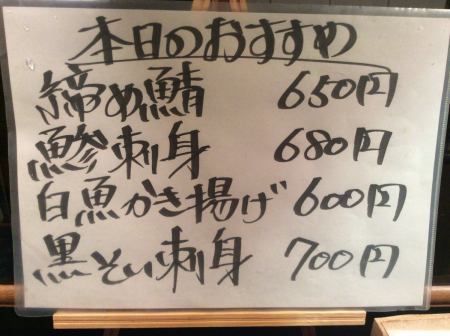 本日のおすすめ
締め鯖 650円
鰺刺身 680円
白魚かき揚げ 600円
黒そい刺身 700円